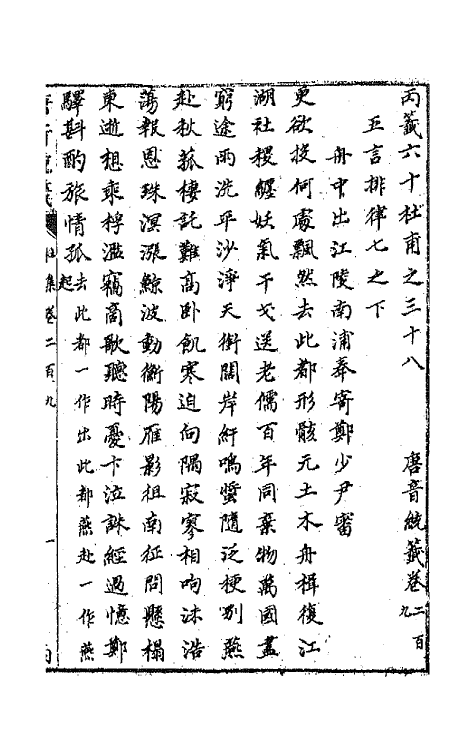 丙籤六十杜甫之三十八　唐音統籤卷二百九
五言排律七之下
舟中出江陵南浦奉寄鄭少尹審
更欲投何處飄然去此都形骸元土木舟楫復江
湖社稷纏妖氣干戈送老儒百年同棄物萬國盡
窮途雨洗平沙淨天銜闊岸紆鳴螿隨泛梗別燕
赴秋菰棲託難高臥飢寒迫向隅寂寥相呴沫浩
蕩報恩珠溟漲鯨波動衡陽雁影徂南征問懸榻
東逝想乘桴濫竊商歌聽時憂卞泣誅經過憶鄭
驛斟酌旅情孤去此都一作出此都燕赴一作燕
起
杜集卷二百九
一